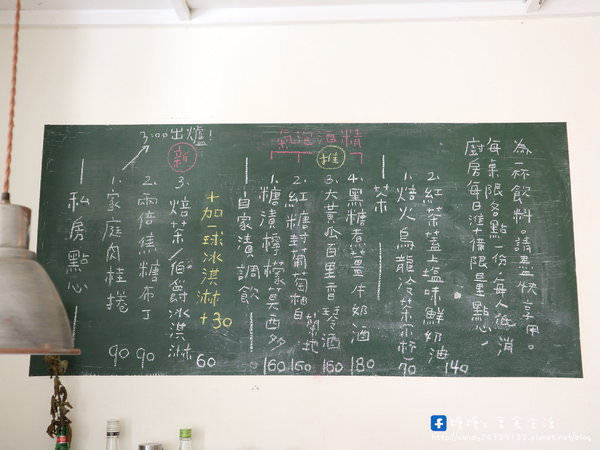 3:00出爐!
私房點心
1.家庭肉桂捲 90
2.兩倍焦糖布丁 90
新
3.焙茶/伯爵冰淇淋 60
+加一球冰淇淋+30
氣泡酒精
推
自家漬調飲
1.糖漬檸檬莫西多 160
2.紅糖封葡萄柚蘭地 160
3.大黃瓜百里香琴酒 160
4.黑糖煮薑片奶酒 180
茶
1.焙火烏龍冷茶(杯) 70
2.紅茶蓋上鹽味鮮奶油 140
廚房每日準備限量點心,
每桌限各點一份,每人低消
為一杯飲料。請盡快享用。